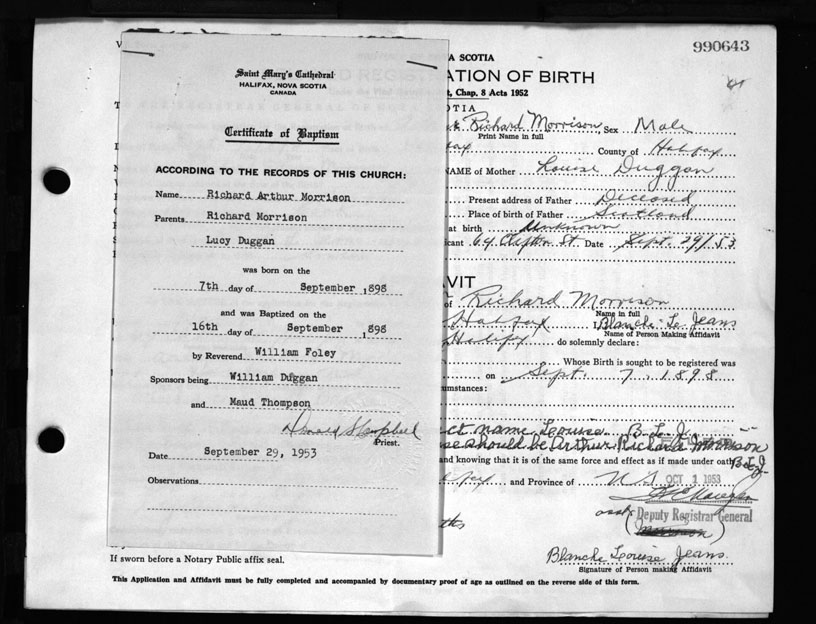 990643
Saint Mary's Cathedral
HALIFAX, NOVA SCOTIA
CANADA
Certificate of Baptism
ACCORDING TO THE RECORDS OF THIS CHURCH:
Name Richard Arthur Morrison
Parents Richard Morrison
Lucy Duggan
was born on the
7th day of September 1898
and was Baptized on the
16th day of September 1898
by Reverend William Foley
Sponsors being William Duggan
and Maud Thompson
Priest.
Date September 29, 1953
Observations
A SCOTIA
ATION OF BIRTH
t, Chap. 8 Acts 1952
OTIA
Richard Morrison, Sex Male
Print Name in full
fax County of Halifax
NAME of Mother Louise Duggan
Present address of Father Deceased
Place of birth of Father Scotland
at birth Unknown
icant 64 Clifton St. Date Sept. 29/53
VIT
of Richard Morrison
Name in full
Halifax Blanche L. Jeans
Name of Person Making Affidavit
Halifax do solemnly declare:
Whose Birth is sought to be registered was
on Sept. 7, 1898
umstances:
ct name Louise B L J
se should be Arthur Richard Morrison
and knowing that it is of the same force and effect as if made under oath B L J
fax and Province of N S OCT 1 1953
Deputy Registrar General
If sworn before a Notary Public affix seal.
Blanche Louise Jeans.
Signature of Person making Affidavit
This Application and Affidavit must be fully completed and accompanied by documentary proof of age as outlined on the reverse side of this form.